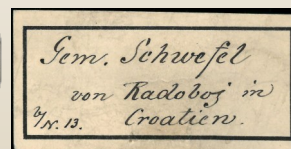 Gem. Schwefel
von Radoboj in
Croatien.
b/N. 13.